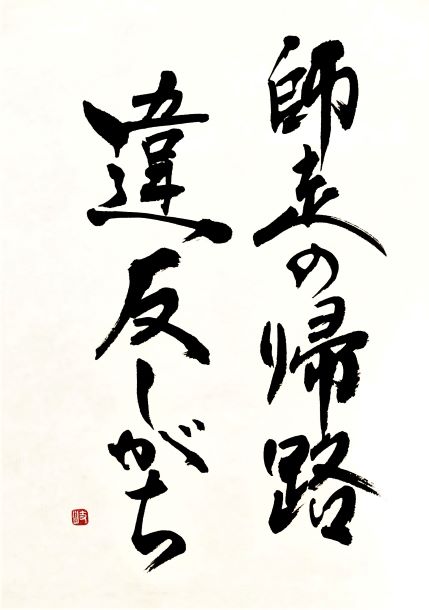 師走の帰路
違反しがち